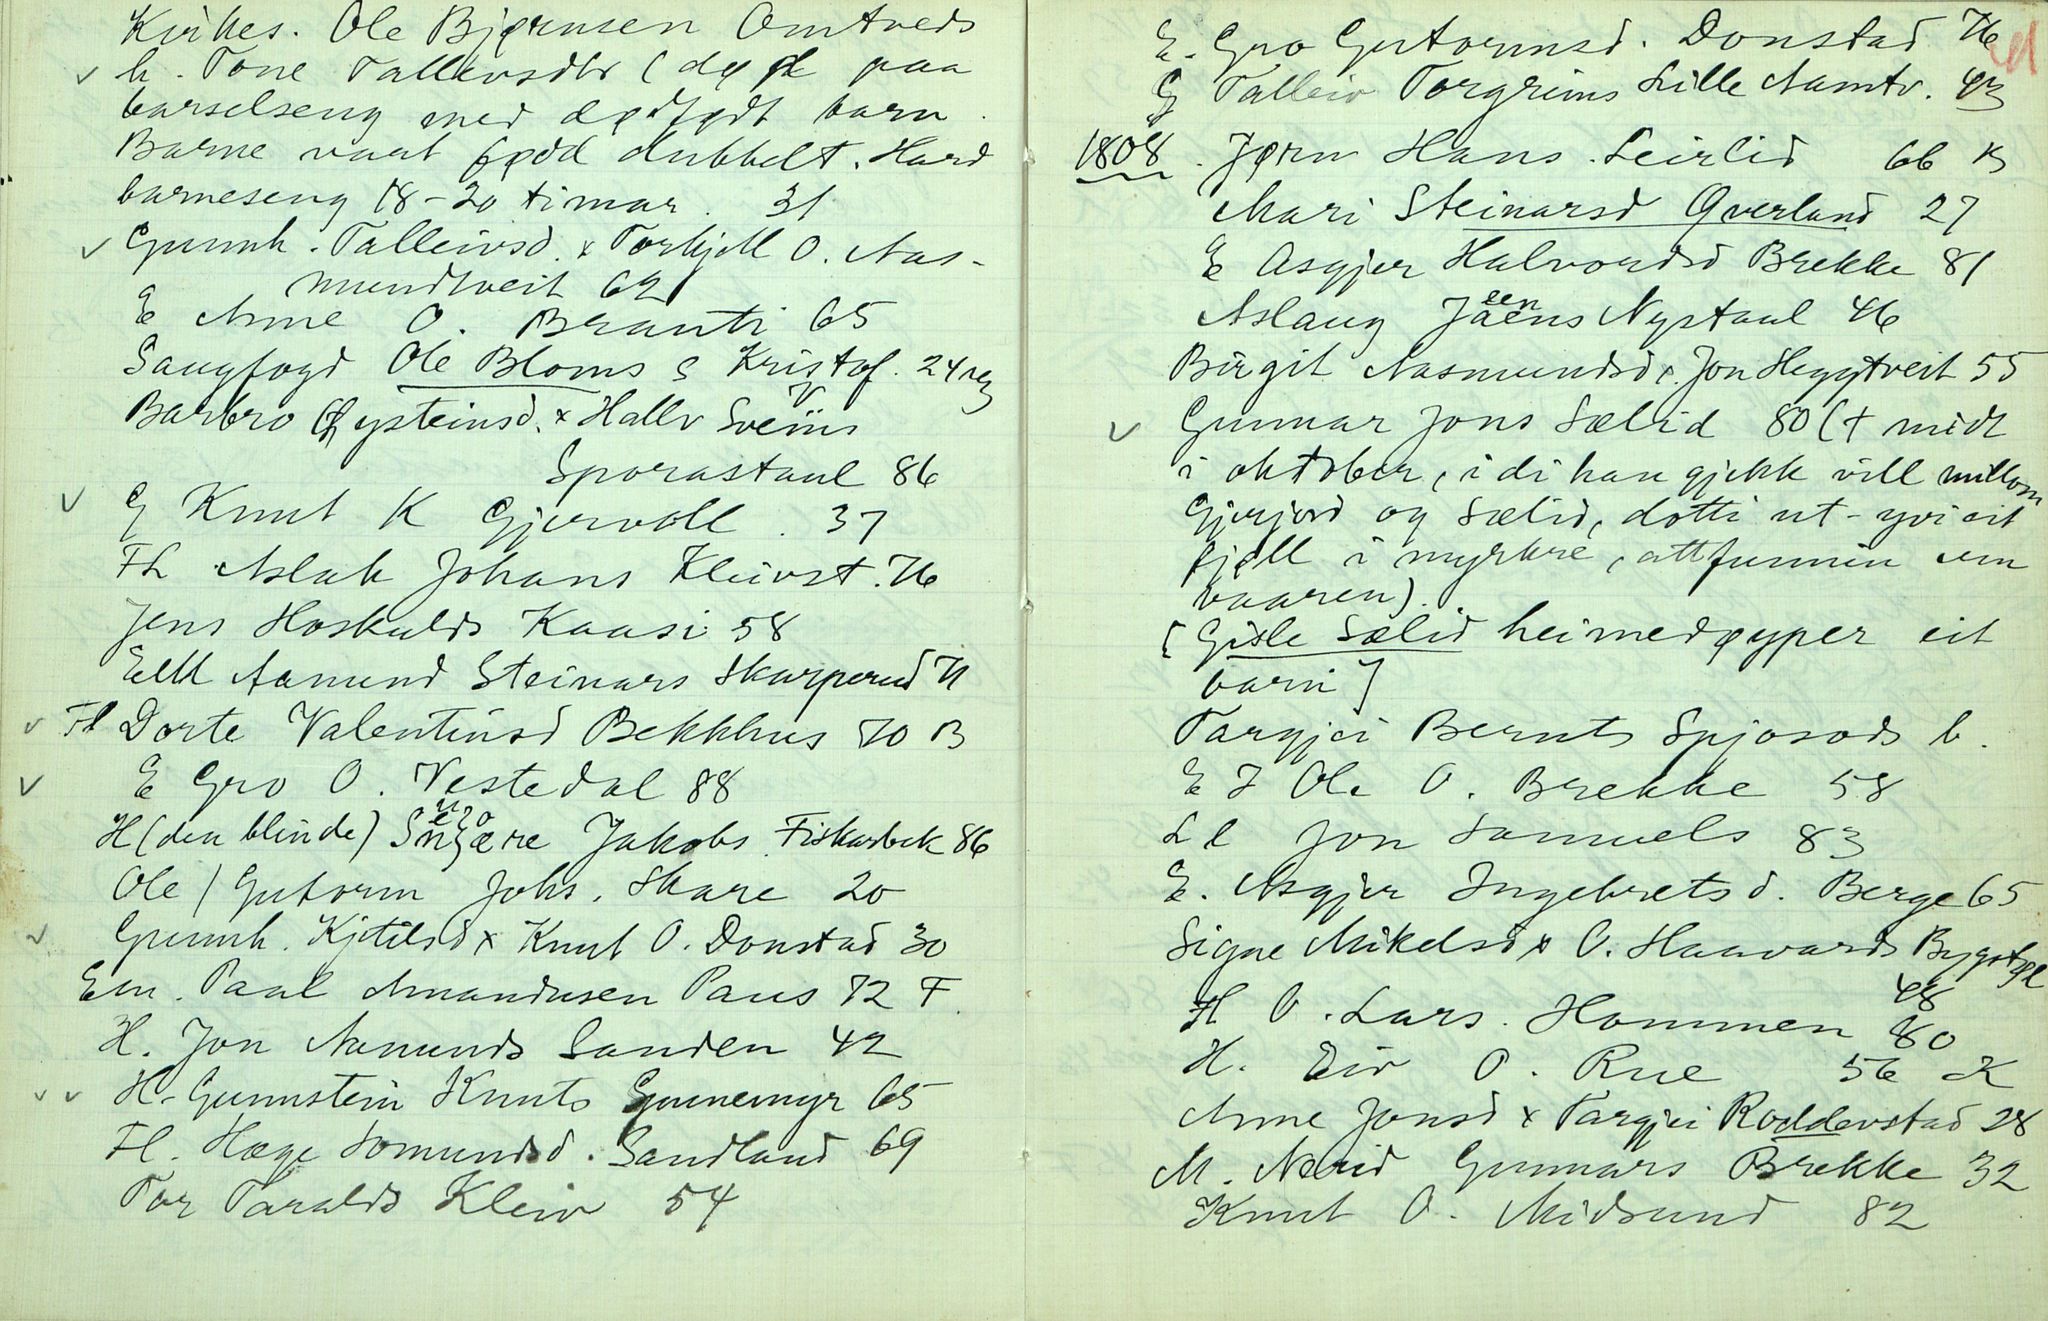 Kirkes. Ole Bjørnsen Omtveds
h. Tone Tallevsdtr (døde paa
barselseng med dødfødt barn.
Barne vart fødd dubbelt. Hard
barneseng 18-20 timar. 31
Gunnh. Talleivsd. x Torkjell O. Aas-
mundtveit 62
E Anne O. Branti 65
Saugfogd Ole Bloms s Kristof. 24
Barbro Øysteinsd. x Hallv Sveins
Sporastaul 86
G Knut K Gjervoll. 37
FL Aslak Johans Kleivst. 76
Jens Hoskulds Kaasi 58
Elll Aamund Steinars Skarperud 71
Fl Dorte Valentinsd Bekkhus 70 B
E Gro O. Vestedal 88
H (den blinde) Jakobs Fiskarbek 86
Ole / Gutorm Johs. Skare 20
Gunnh. Kjetilsd x Knut O. Donstad 30
Em. Paal Amundusen Paus 72 F.
H. Jon Aamunds Sanden 42
H. Gunnstein Knuts Grunemyr 65
Fl. Hæge Somundsd. Sandland 69
Tor Taralds Kleiv 54
E. Gro Gutormsd. Donstad 76
G Talleiv Torgrims Lille Aamtv. 43
1808. Jørn Hans. Leirlid 66 K
Mari Steinarsd Øverland 27
E Asgjer Halvordsd Brekke 81
Aslaug Jaens Nystaul 46
Birgit Aasmundsd x Jon Heggtveit 55
Gunnar Jons Sælid 80 († midt
i oktober, i di han gjekk vill millom
Gjerjord og Sælid, dotti ut-yvi eit
fjell i myrkre, attfunnin um
vaaren).
[Gisle Sælid heimedøyper eit
barn]
Targjei Bernts Spjosods b.
E I Ole O. Brekke 58
Ll Jon Samuels 83
E. Asgjer Ingebretsd. Berge 65
Signe Mikelsd x O. Haavards Bygstøl
48
Fl O. Lars. Hommen 80
H. Eiv O. Rue 56 K
Anne Jonsd x Targjei Roddevstad 28
M. Nerid Gunnars Brekke 32
Knut O. Midsund 82